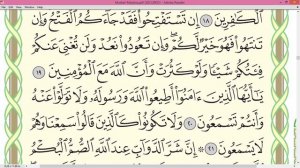 ٱلْكَٰفِرِينَ ١٨ إِن تَسْتَفْتِحُوا۟ فَقَدْ جَآءَكُمُ ٱلْفَتْحُ وَإِن
تَنتَهُوا۟ فَهُوَ خَيْرٌ لَّكُمْ وَإِن تَعُودُوا۟ نَعُدْ وَلَن تُغْنِىَ عَنكُمْ
فِئَتُكُمْ شَيْـًٔا وَلَوْ كَثُرَتْ وَأَنَّ ٱللَّهَ مَعَ ٱلْمُؤْمِنِينَ ١٩
يَٰٓأَيُّهَا ٱلَّذِينَ ءَامَنُوٓا۟ أَطِيعُوا۟ ٱللَّهَ وَرَسُولَهُۥ وَلَا تَوَلَّوْا۟ عَنْهُ
وَأَنتُمْ تَسْمَعُونَ ٢٠ وَلَا تَكُونُوا۟ كَٱلَّذِينَ قَالُوا۟ سَمِعْنَا وَهُمْ
لَا يَسْمَعُونَ ٢١ ۞ إِنَّ شَرَّ ٱلدَّوَآبِّ عِندَ ٱللَّهِ ٱلصُّمُّ ٱلْبُكْمُ